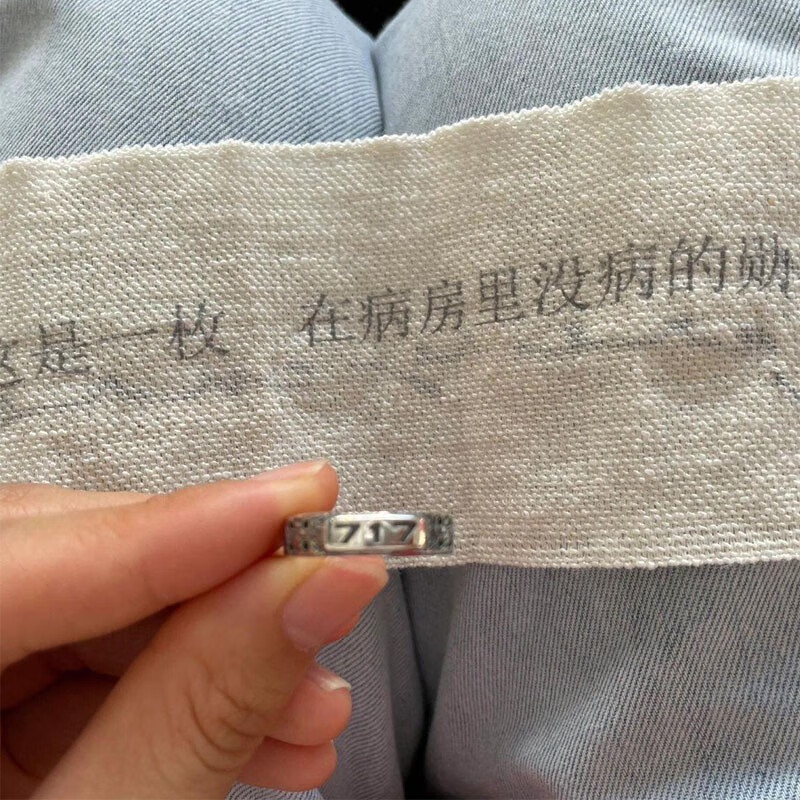 这是一枚 在病房里没病的勋
717